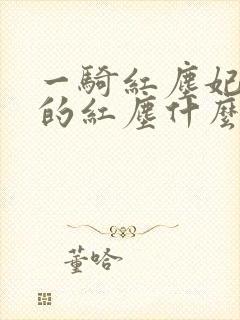 一騎紅塵妃
的紅塵什麼
董哈